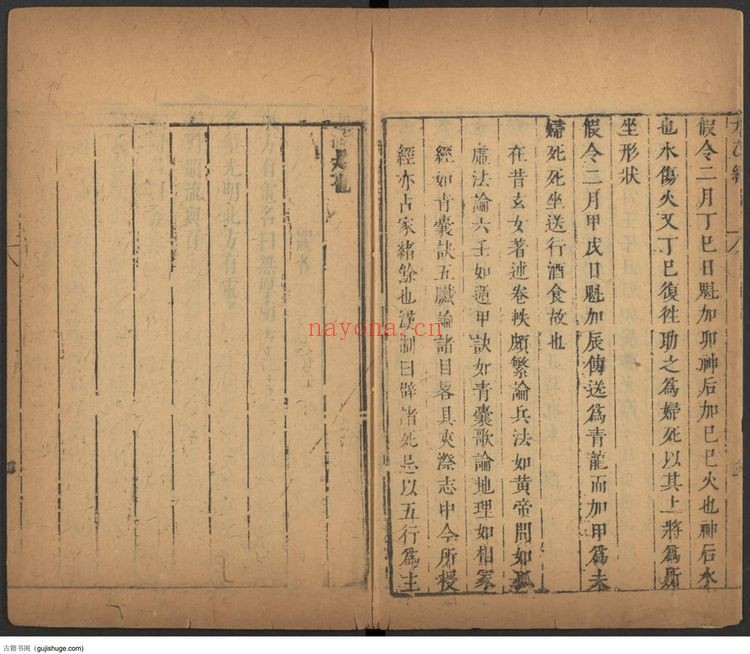 假令二月丁巳日魁加卯神后加巳巳火也神后水
也水傷火又丁巳復徃助之爲婦死以其上將爲
坐形狀
假令二月甲戌日魁加辰傳送爲青龍而加甲爲未
婦死死坐送行酒食故也
在昔玄女著述卷帙頗繁論兵法如黃帝問如孤
虛法論六壬如遁甲訣如青囊歌論地理如相冢
經如青囊訣五臟論諸目畧具夾漈志中今所授
經亦古家緒餘也漢制曰辟諸死忌以五行爲主
nayona.cn
古籍书阁（gujishuge.com）